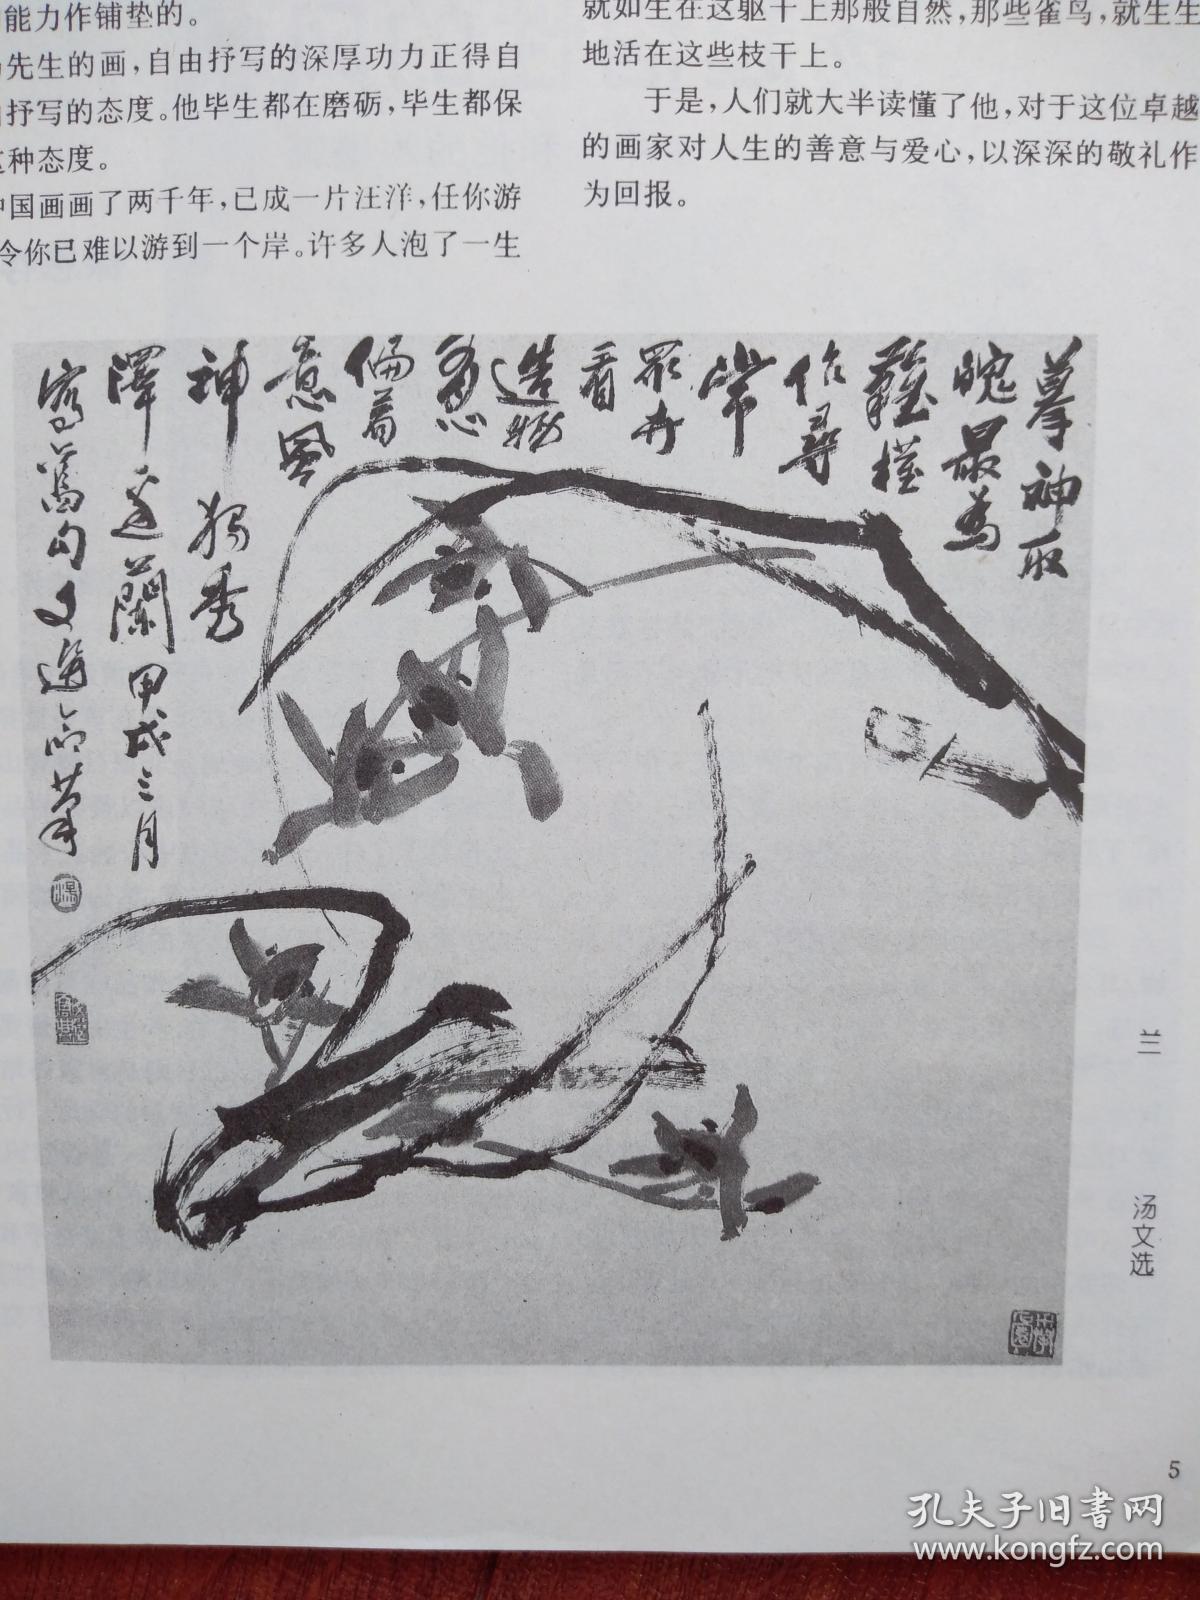 能力作铺垫的。
先生的画，自由抒写的深厚功力正得自
抒写的态度。他毕生都在磨砺，毕生都保
这种态度。
中国画画了两千年，已成一片汪洋，任你游
令你已难以游到一个岸。许多人泡了一生
就如生在这躯干上那般自然，那些雀鸟，就生生
地活在这些枝干上。
于是，人们就大半读懂了他，对于这位卓越
的画家对人生的善意与爱心，以深深的敬礼作
为回报。
摹神取
魄最為
難權
作尋
常
眾卉
看
造物
忽
偏著
意風
神獨秀
澤邊蘭甲戌三月
寫舊句文選命筆
兰
汤文选
5
孔夫子旧书网
www.kongfz.com